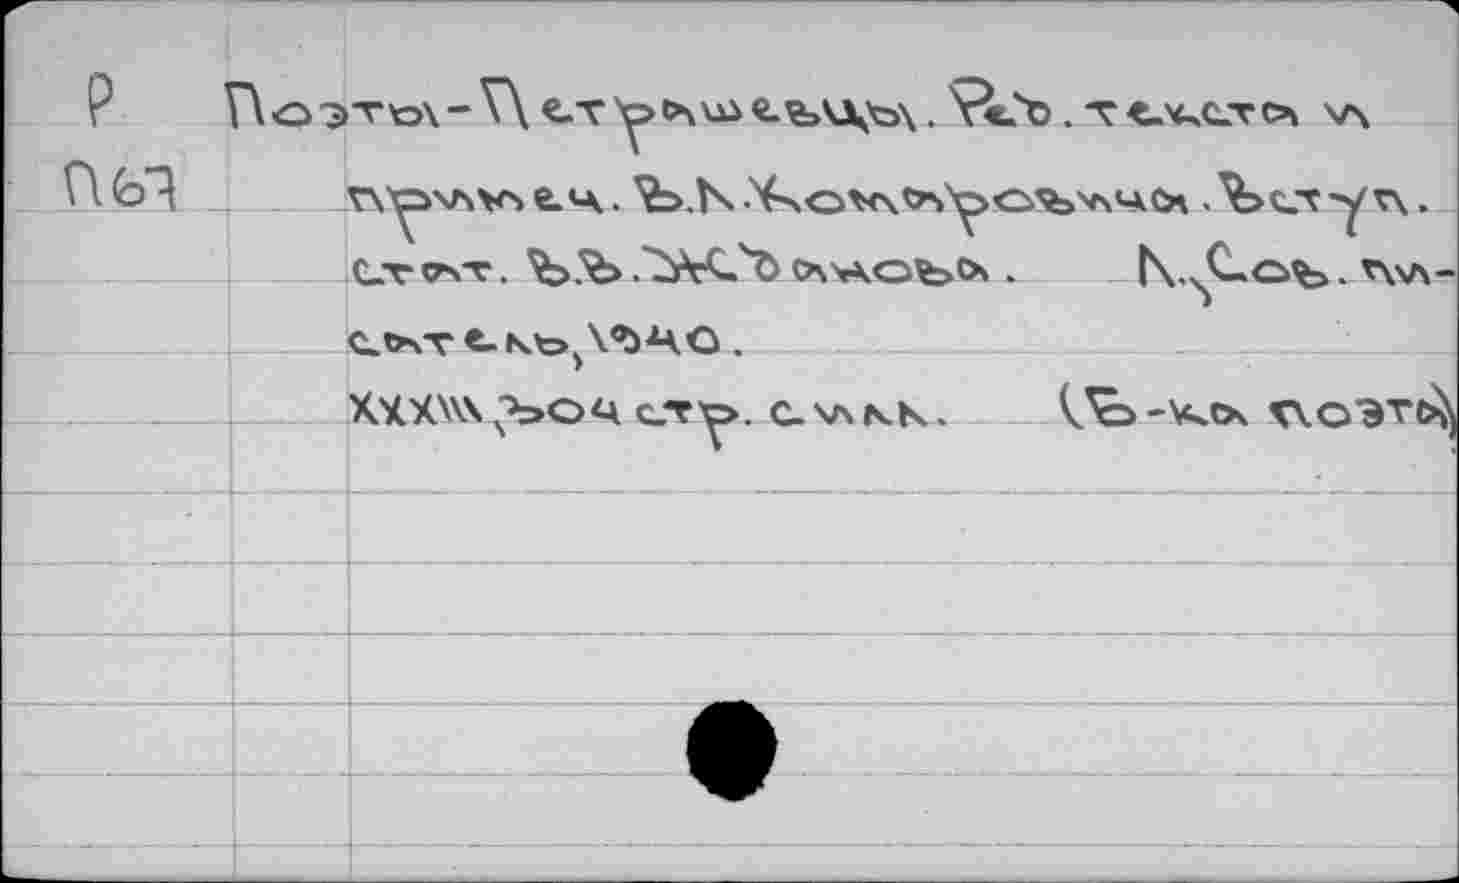 Р Поэты-Петрашевцы. Ред. текста и
П67 примеч. В.Л.Комаровича. Вступ.
стат. В.В.Жданова. Л.,Сов. пи-
сатель,1940.
XXXIII,304 стр. с илл. (Б-ка поэта)